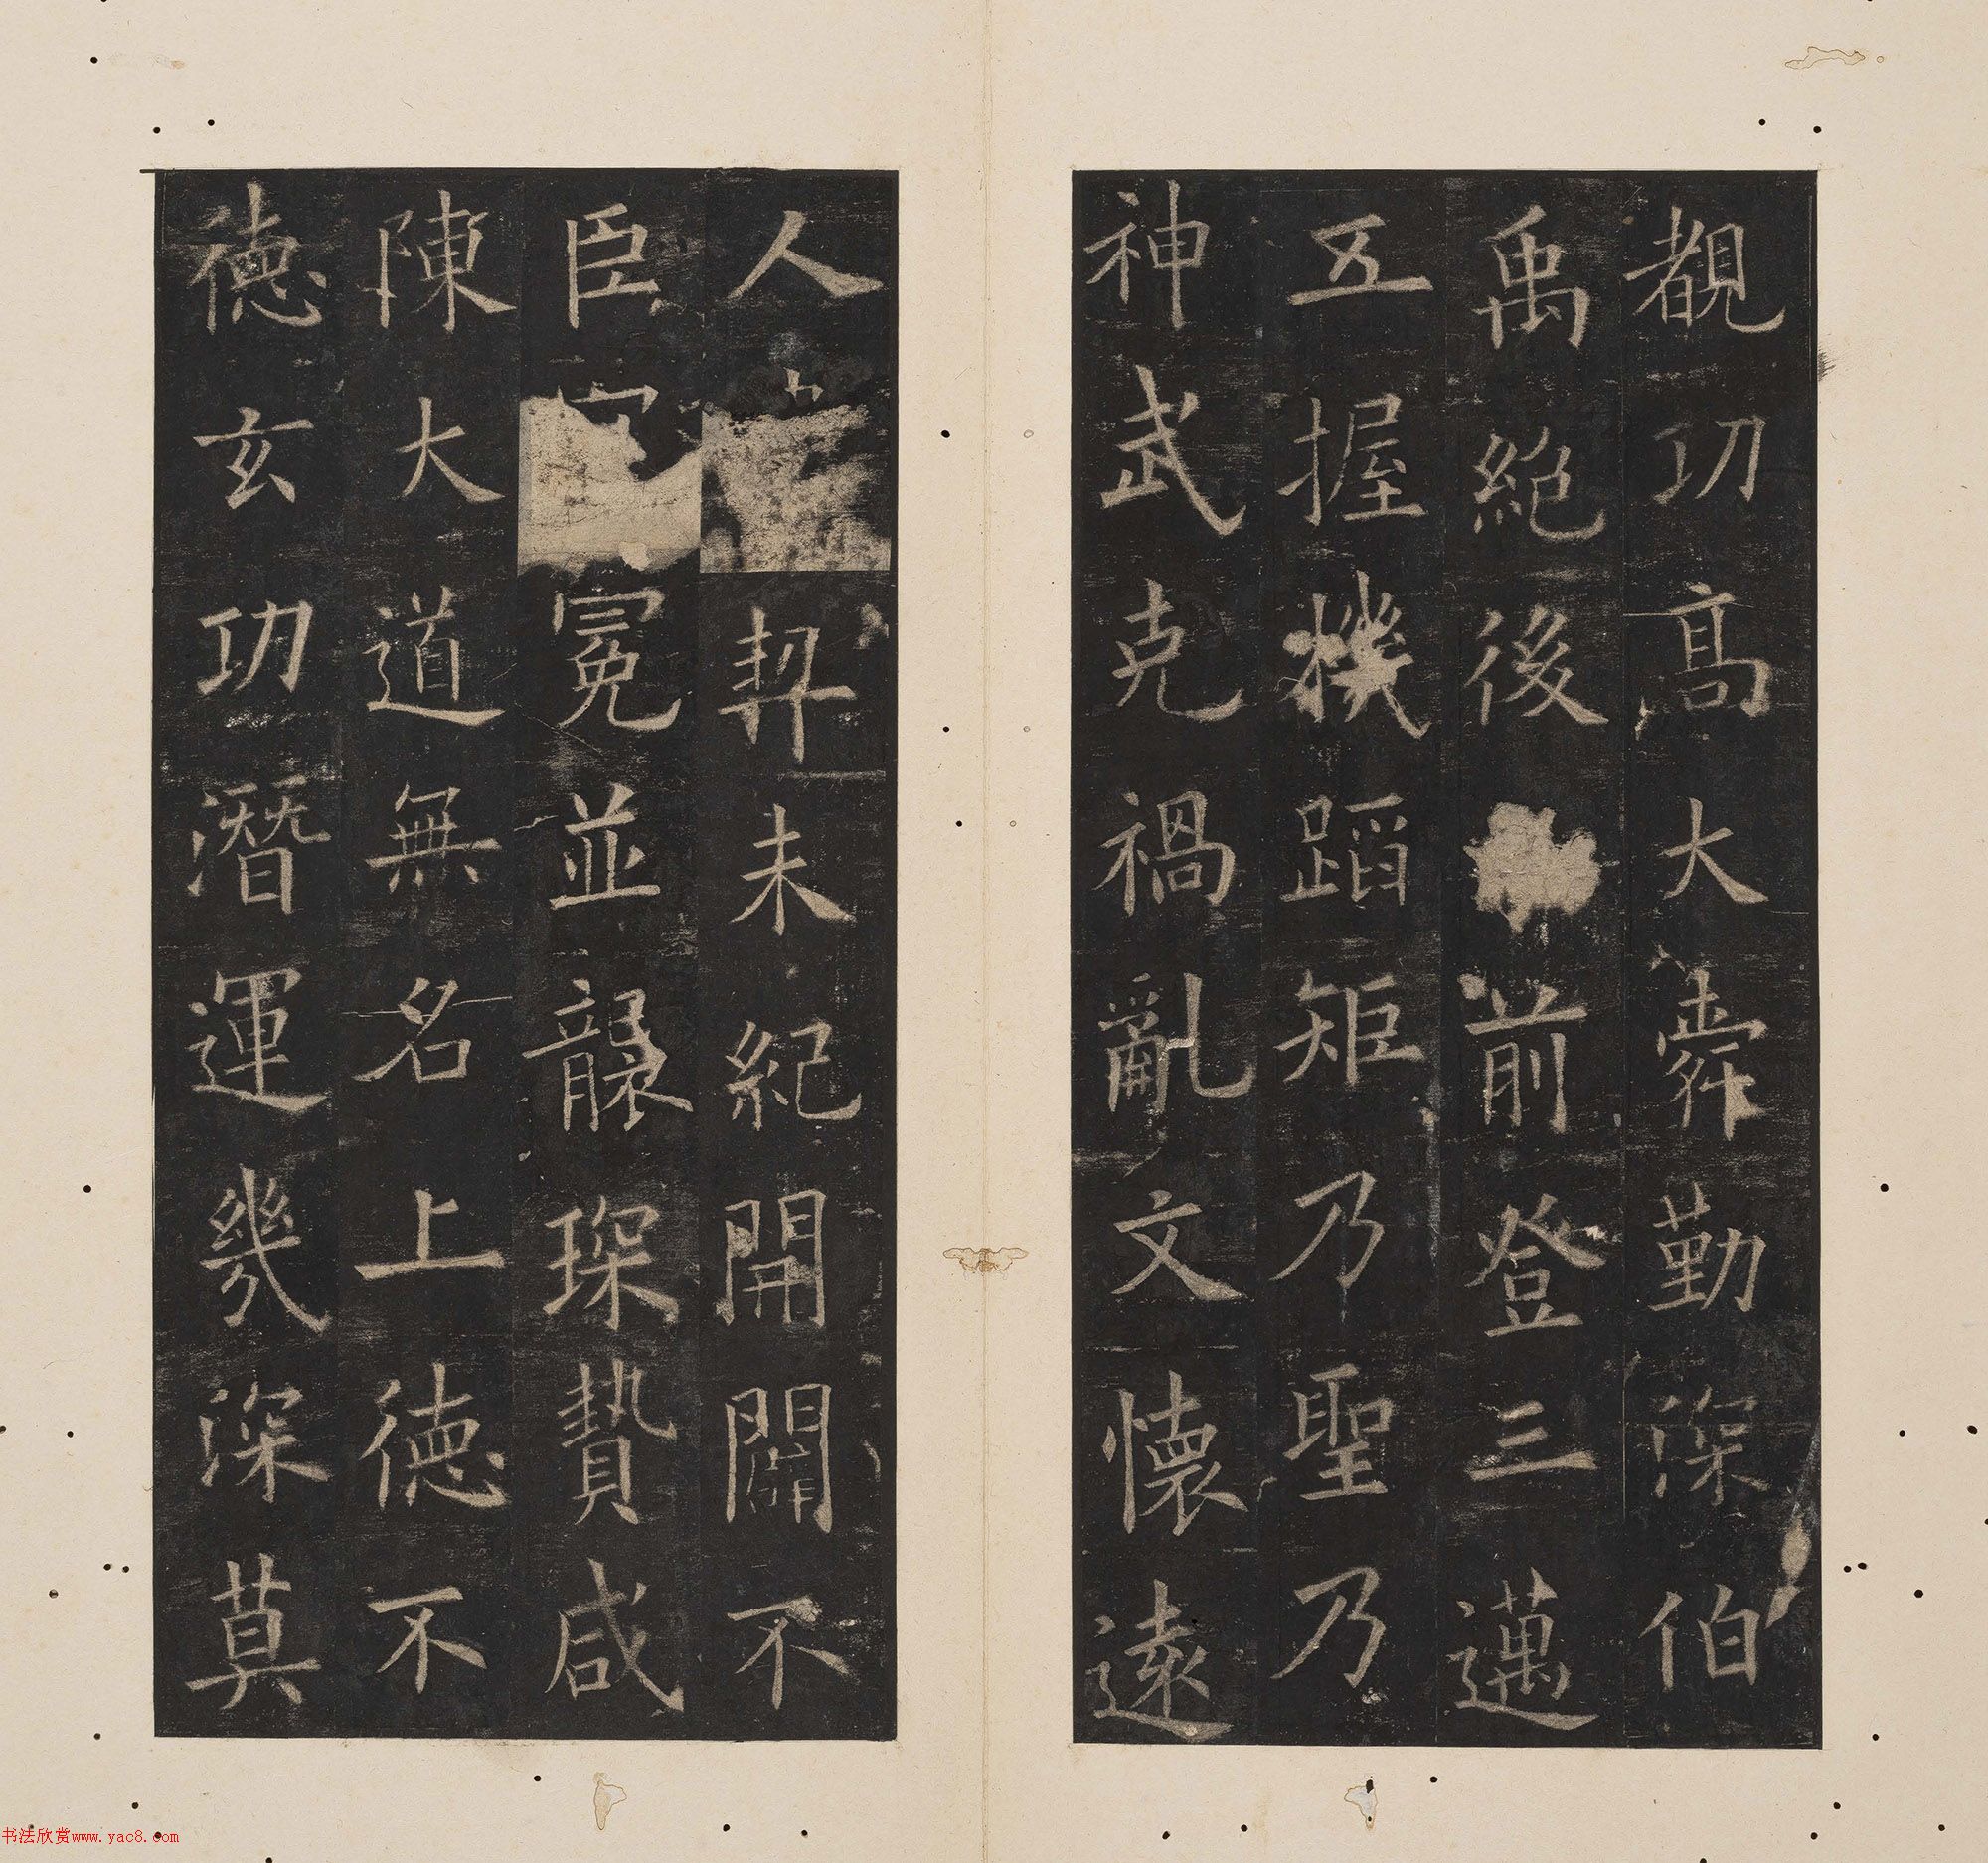 覩功高大舜勤深伯
禹絕後前登三邁
五握機蹈矩乃聖乃
神武克禍亂文懷遠
人契未紀開闢不
臣冕並襲琛贄咸
陳大道無名上德不
德玄功潛運幾深莫
书法欣赏www.yac8.com